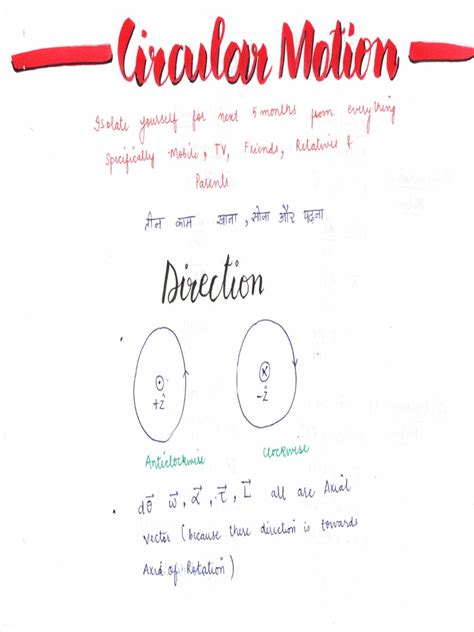 Circular Motion
Isolate yourself for next 5 months from everything
Specifically Mobile, TV, Friends, Relatives &
Parents
तीन काम खाना, सोना और पढ़ना
Direction
+ẑ
-ẑ
Anticlockwise
Clockwise
dθ⃗ ω⃗, α⃗, τ⃗, L⃗ all are Axial
vector (because there direction is towards
Axia of Rotation)